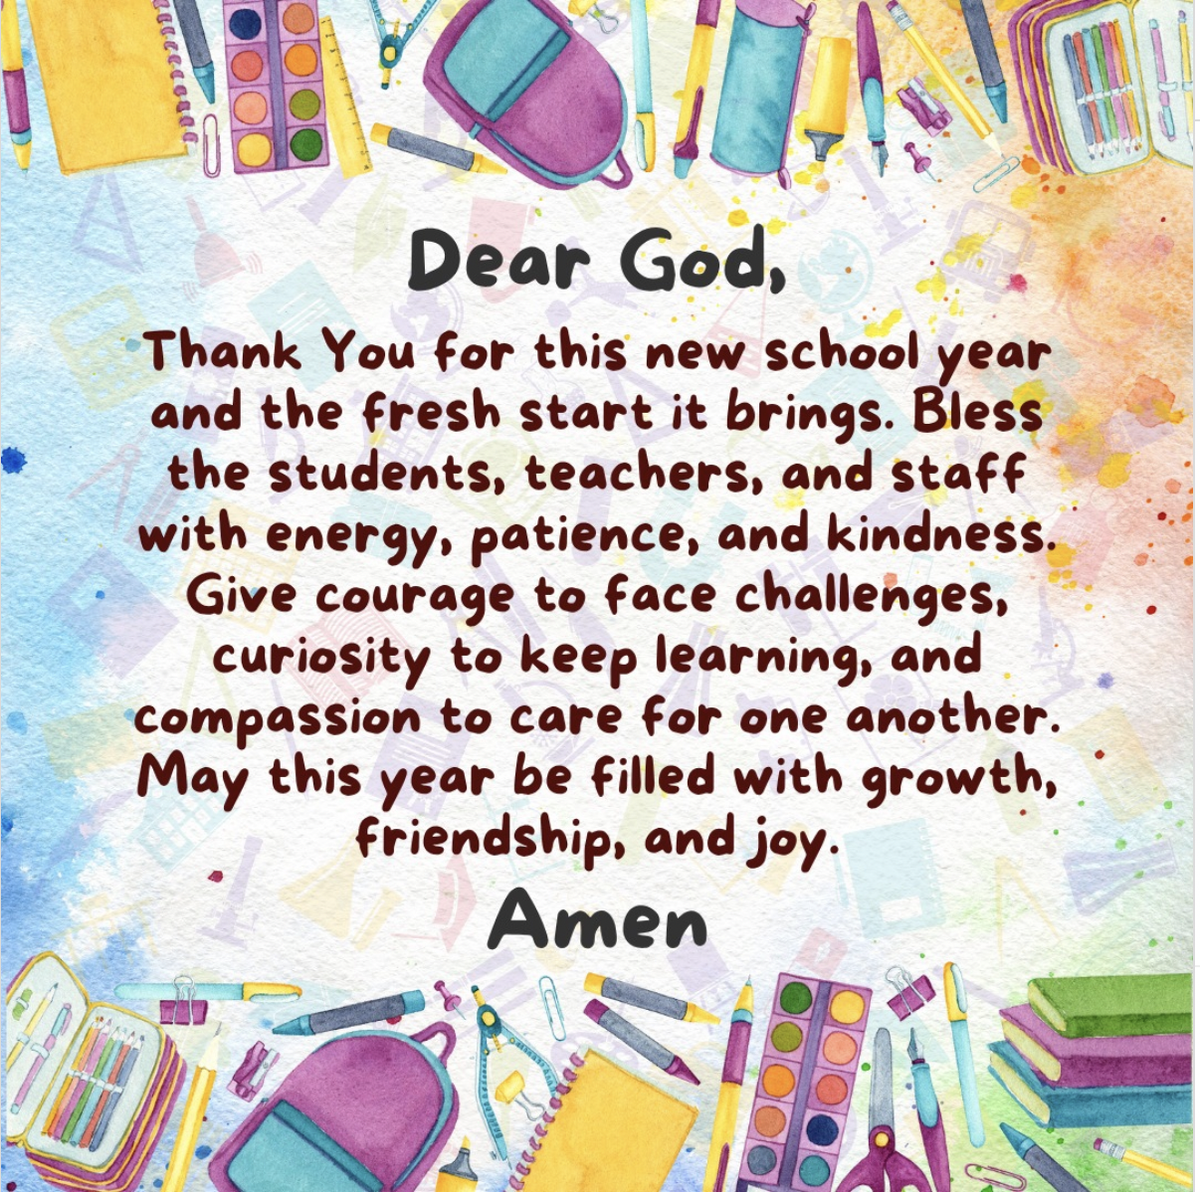 Dear God,
Thank You for this new school year
and the fresh start it brings. Bless
the students, teachers, and staff
with energy, patience, and kindness.
Give courage to face challenges,
curiosity to keep learning, and
compassion to care for one another.
May this year be filled with growth,
friendship, and joy.
Amen